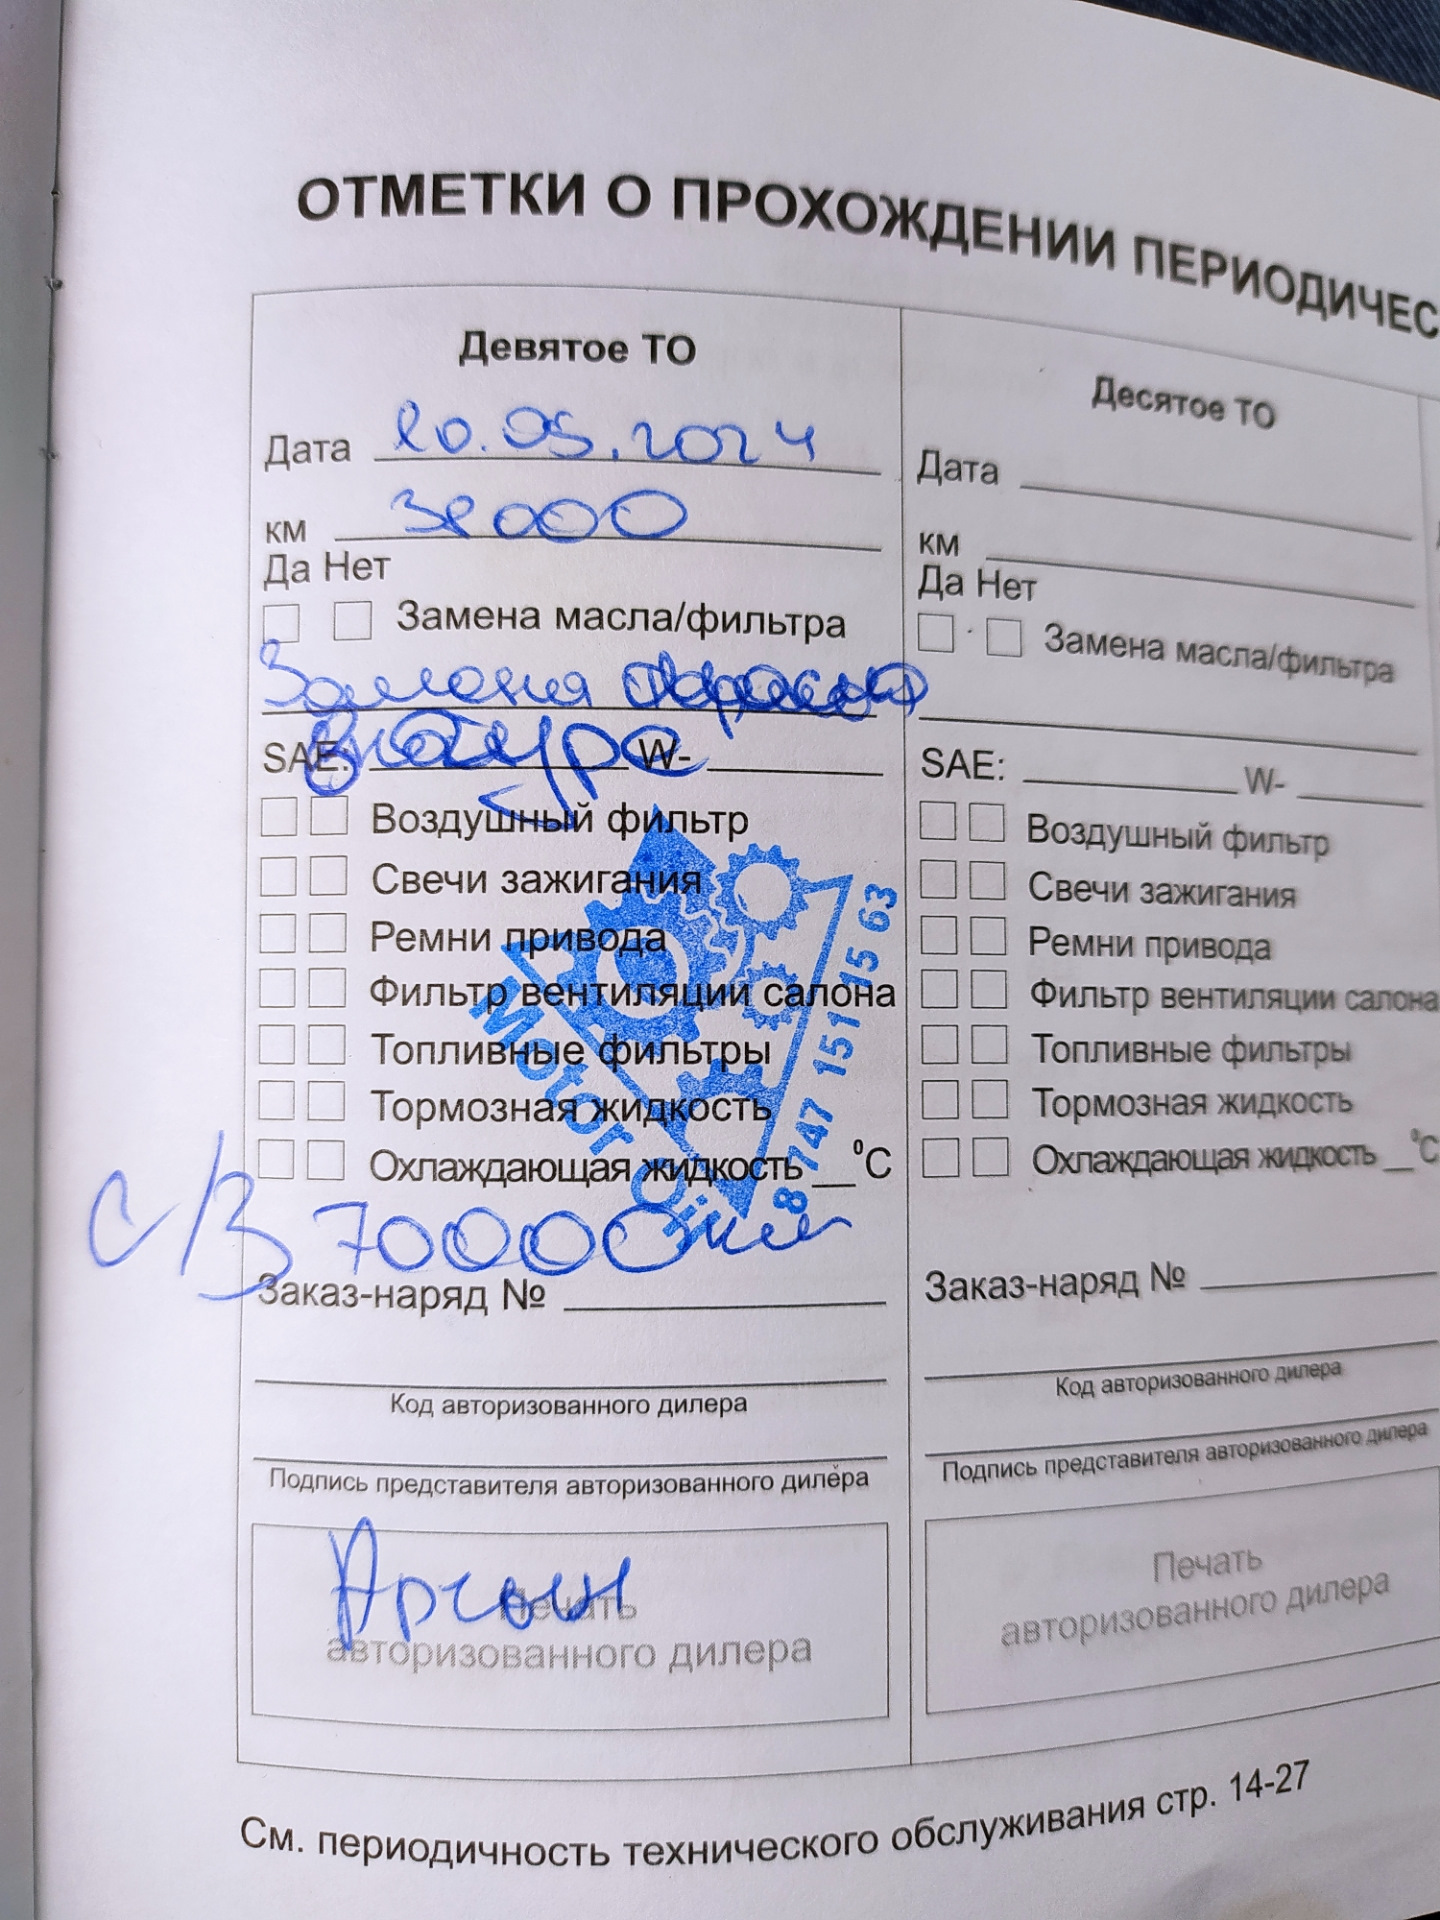 ОТМЕТКИ О ПРОХОЖДЕНИИ ПЕРИОДИЧЕС
Девятое ТО
Дата 20.05.2024
км 38000
Да Нет
Замена масла/фильтра
Замена
SAE: W-
Воздушный фильтр
Свечи зажигания
Ремни привода
Фильтр вентиляции салона
Топливные фильтры
Тормозная жидкость
Охлаждающая жидкость __ °C
Motor Oil
8 747 151 15 63
С/З 70000 км
Заказ-наряд №
Код авторизованного дилера
Подпись представителя авторизованного дилера
Аргын
Печать
авторизованного дилера
Десятое ТО
Дата
км
Да Нет
Замена масла/фильтра
SAE: W-
Воздушный фильтр
Свечи зажигания
Ремни привода
Фильтр вентиляции салона
Топливные фильтры
Тормозная жидкость
Охлаждающая жидкость __ °C
Заказ-наряд №
Код авторизованного дилера
Подпись представителя авторизованного дилера
Печать
авторизованного дилера
См. периодичность технического обслуживания стр. 14-27